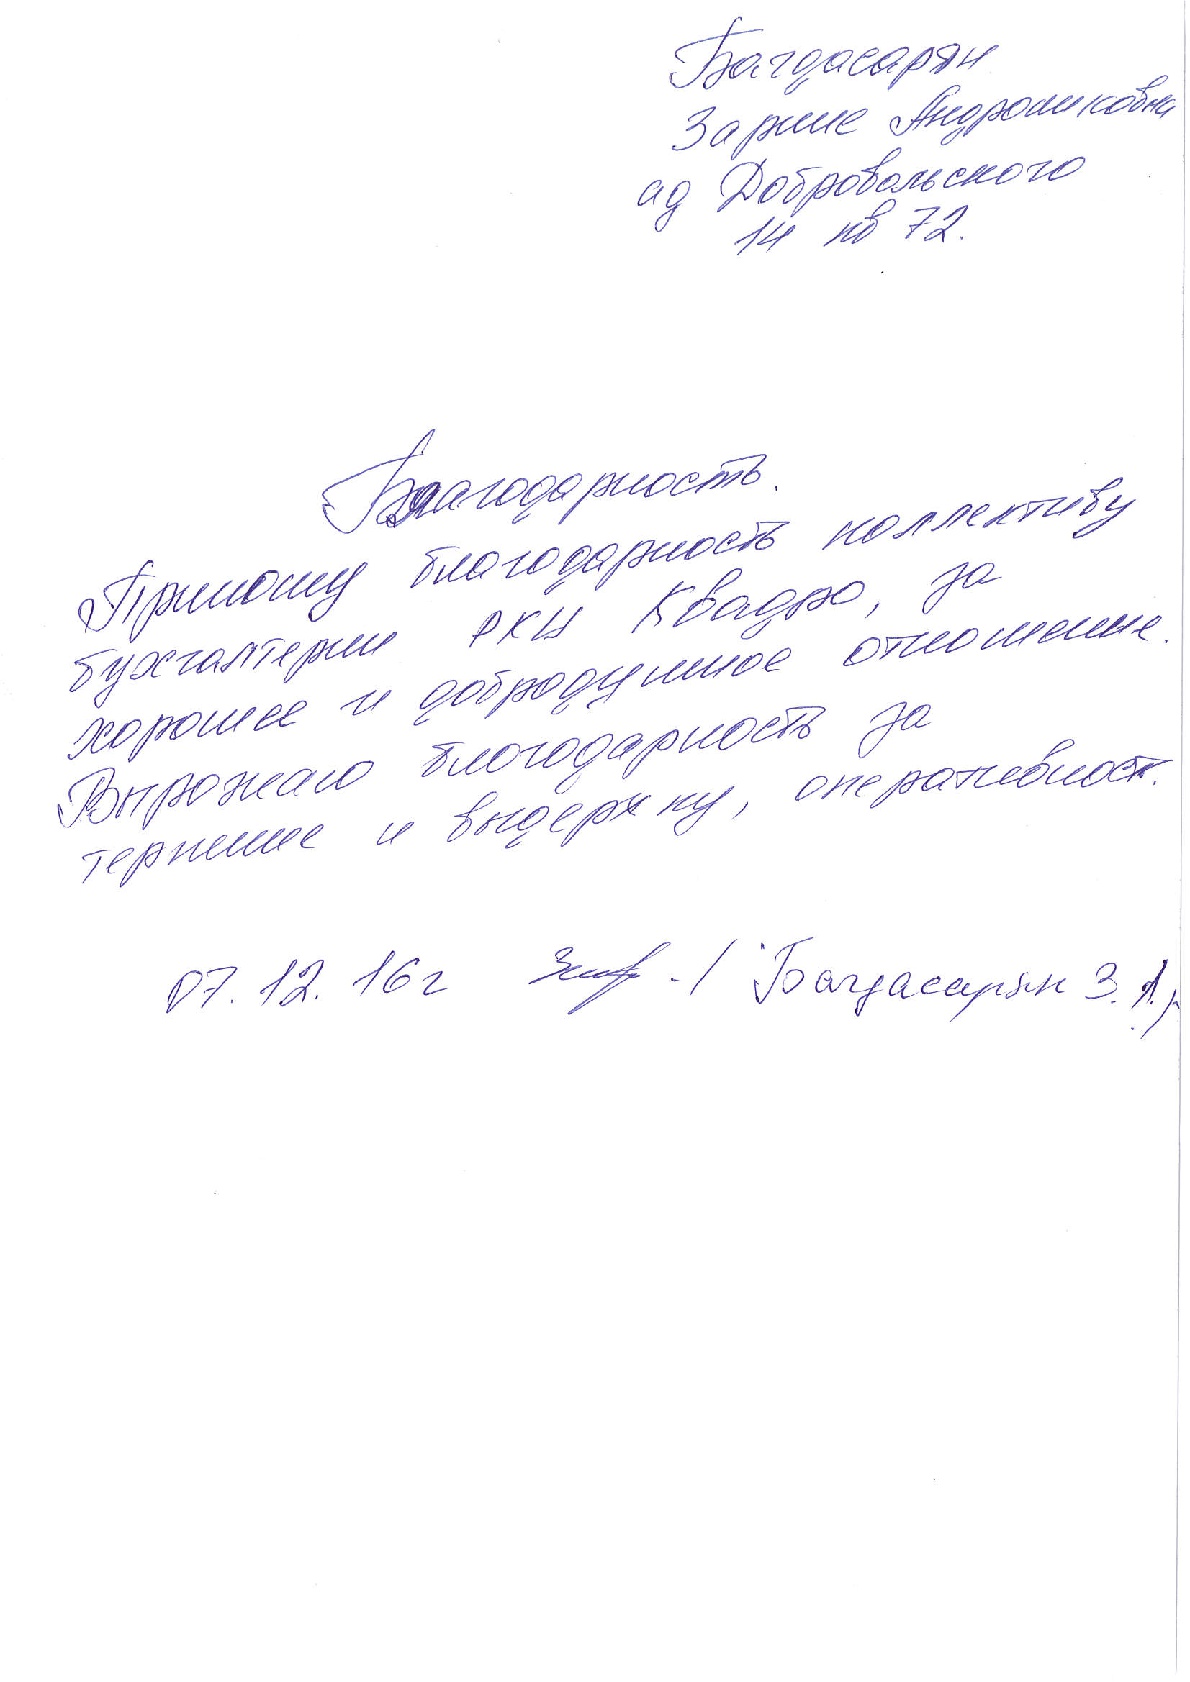 Багдасарян
Зарине Андрониковна
ад Добровольского
14 кв 72.
Благодарность.
Приношу благодарность коллективу
бухгалтерии РКЦ Квадро, за
хорошее и добродушное отношение.
Выражаю благодарность за
терпение и выдержку, оперативност.
07.12.16г / Багдасарян З.А./